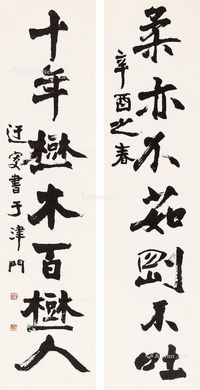 柔亦不茹剛不吐
辛酉之春
十年樹木百樹人
迂叟書于津門